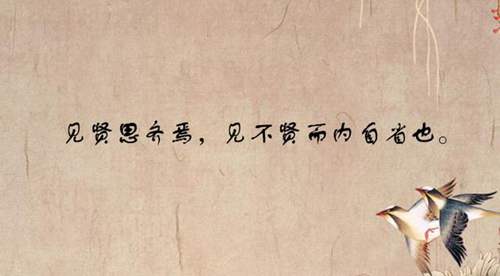 见贤思齐焉，见不贤而内自省也。